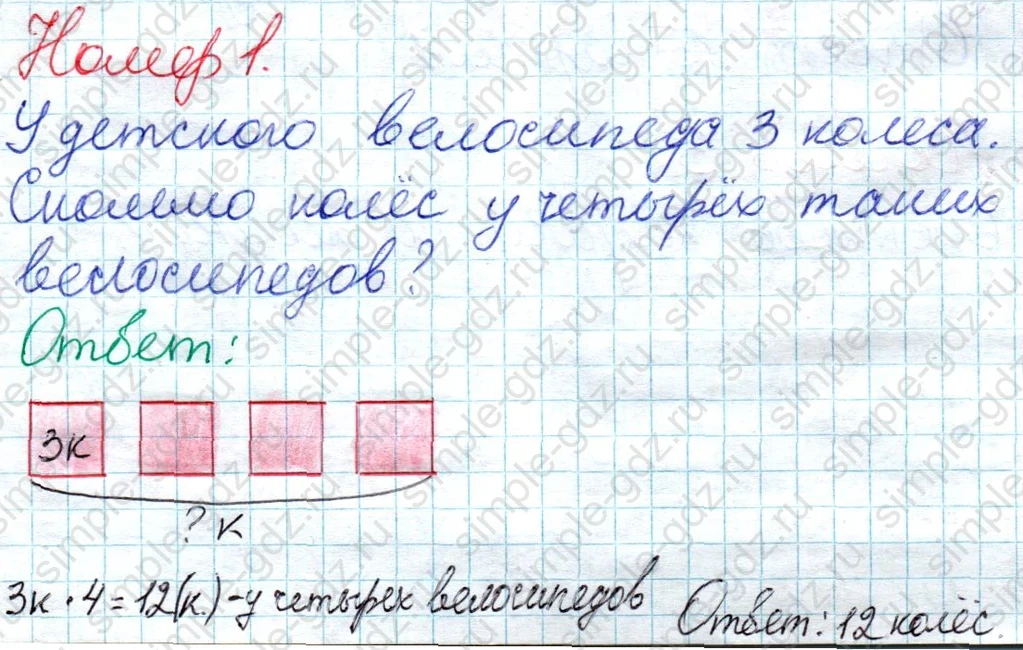 Номер 1.
У детского велосипеда 3 колеса.
Сколько колёс у четырёх таких
велосипедов?
Ответ:
3к
? к
3к · 4 = 12(к.) - у четырех велосипедов Ответ: 12 колёс.
simple-gdz.ru